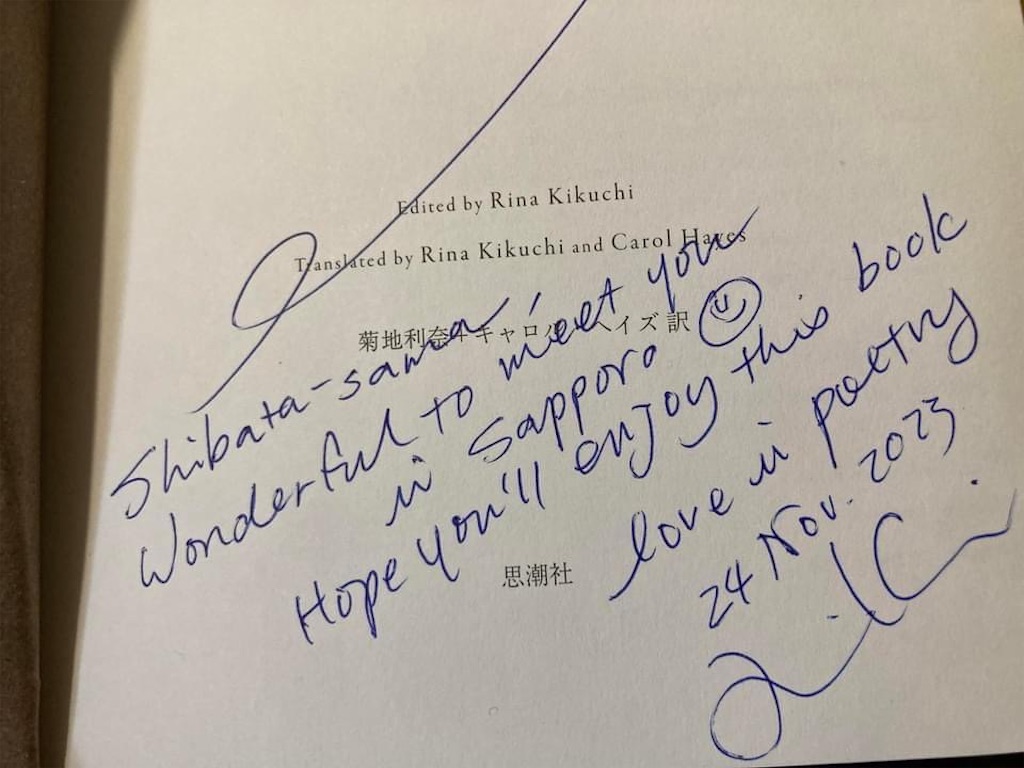 Edited by Rina Kikuchi
Translated by Rina Kikuchi and Carol Hayes
菊地利奈+キャロル・ヘイズ 訳
Shibata-sama,
Wonderful to meet you
in Sapporo
Hope you'll enjoy this book
love in poetry
24 Nov. 2023
思潮社